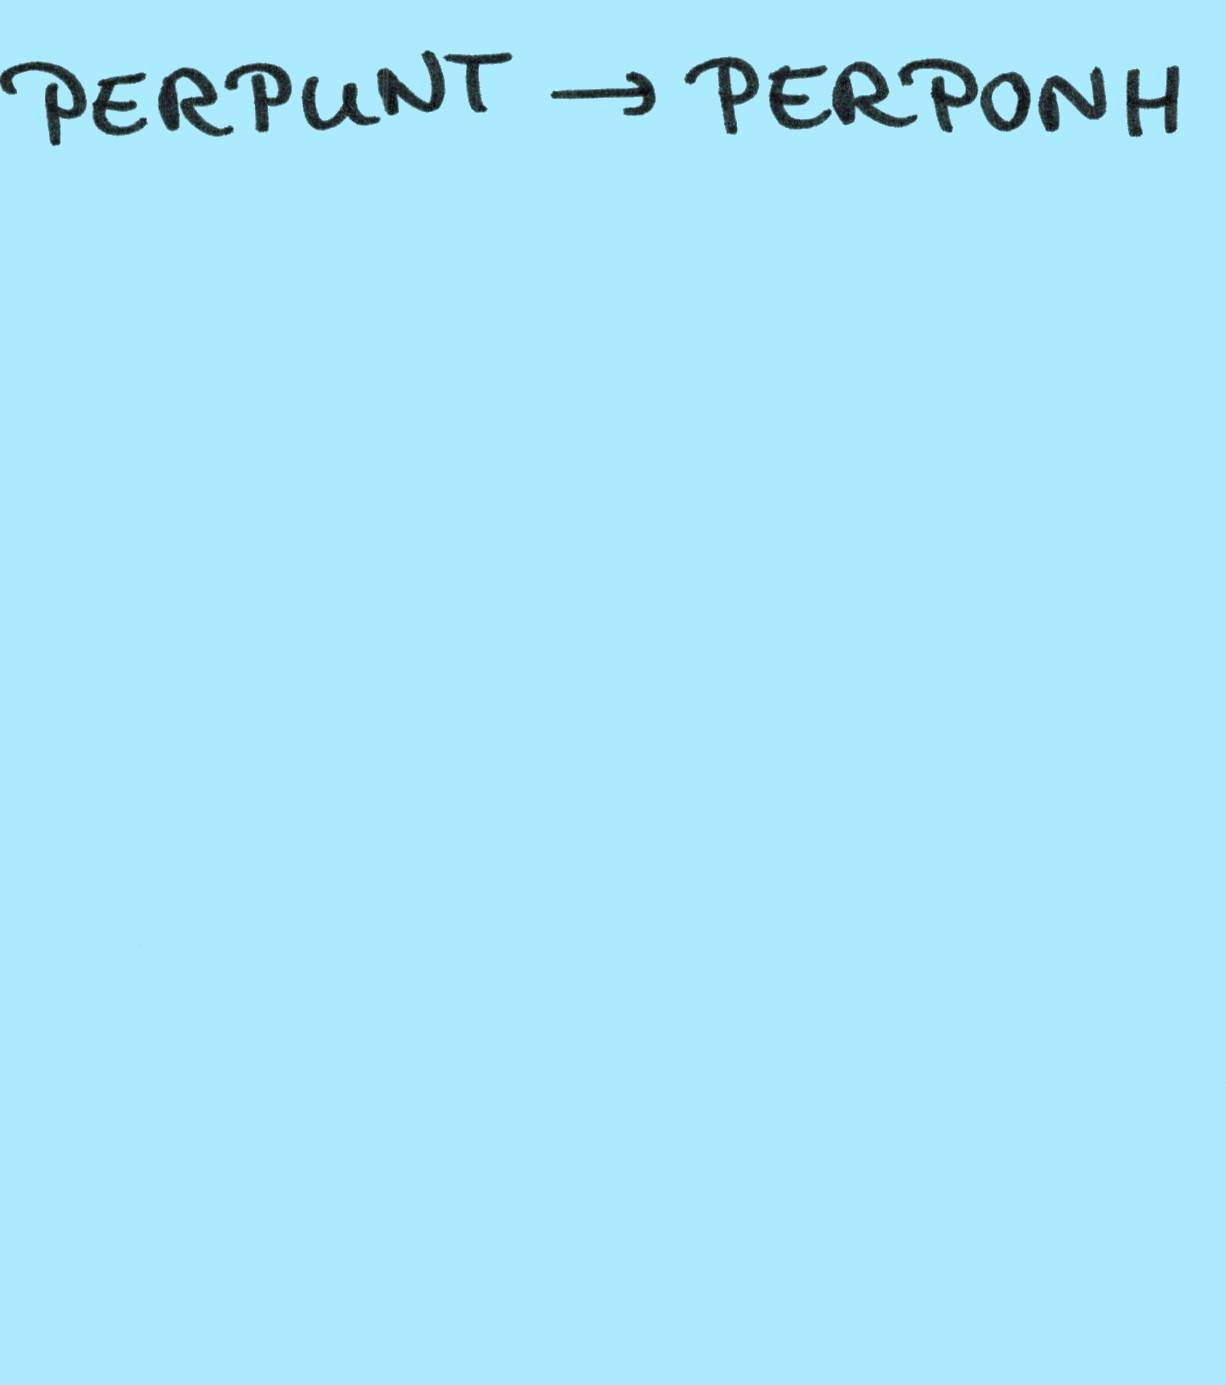 PERPUNT → PERPONH